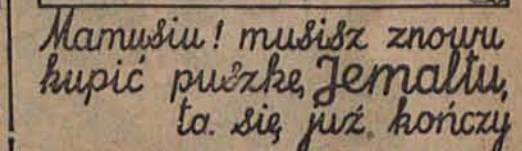 Mamusiu! musisz znowu
kupić puszkę Jemaltu,
ta się już kończy